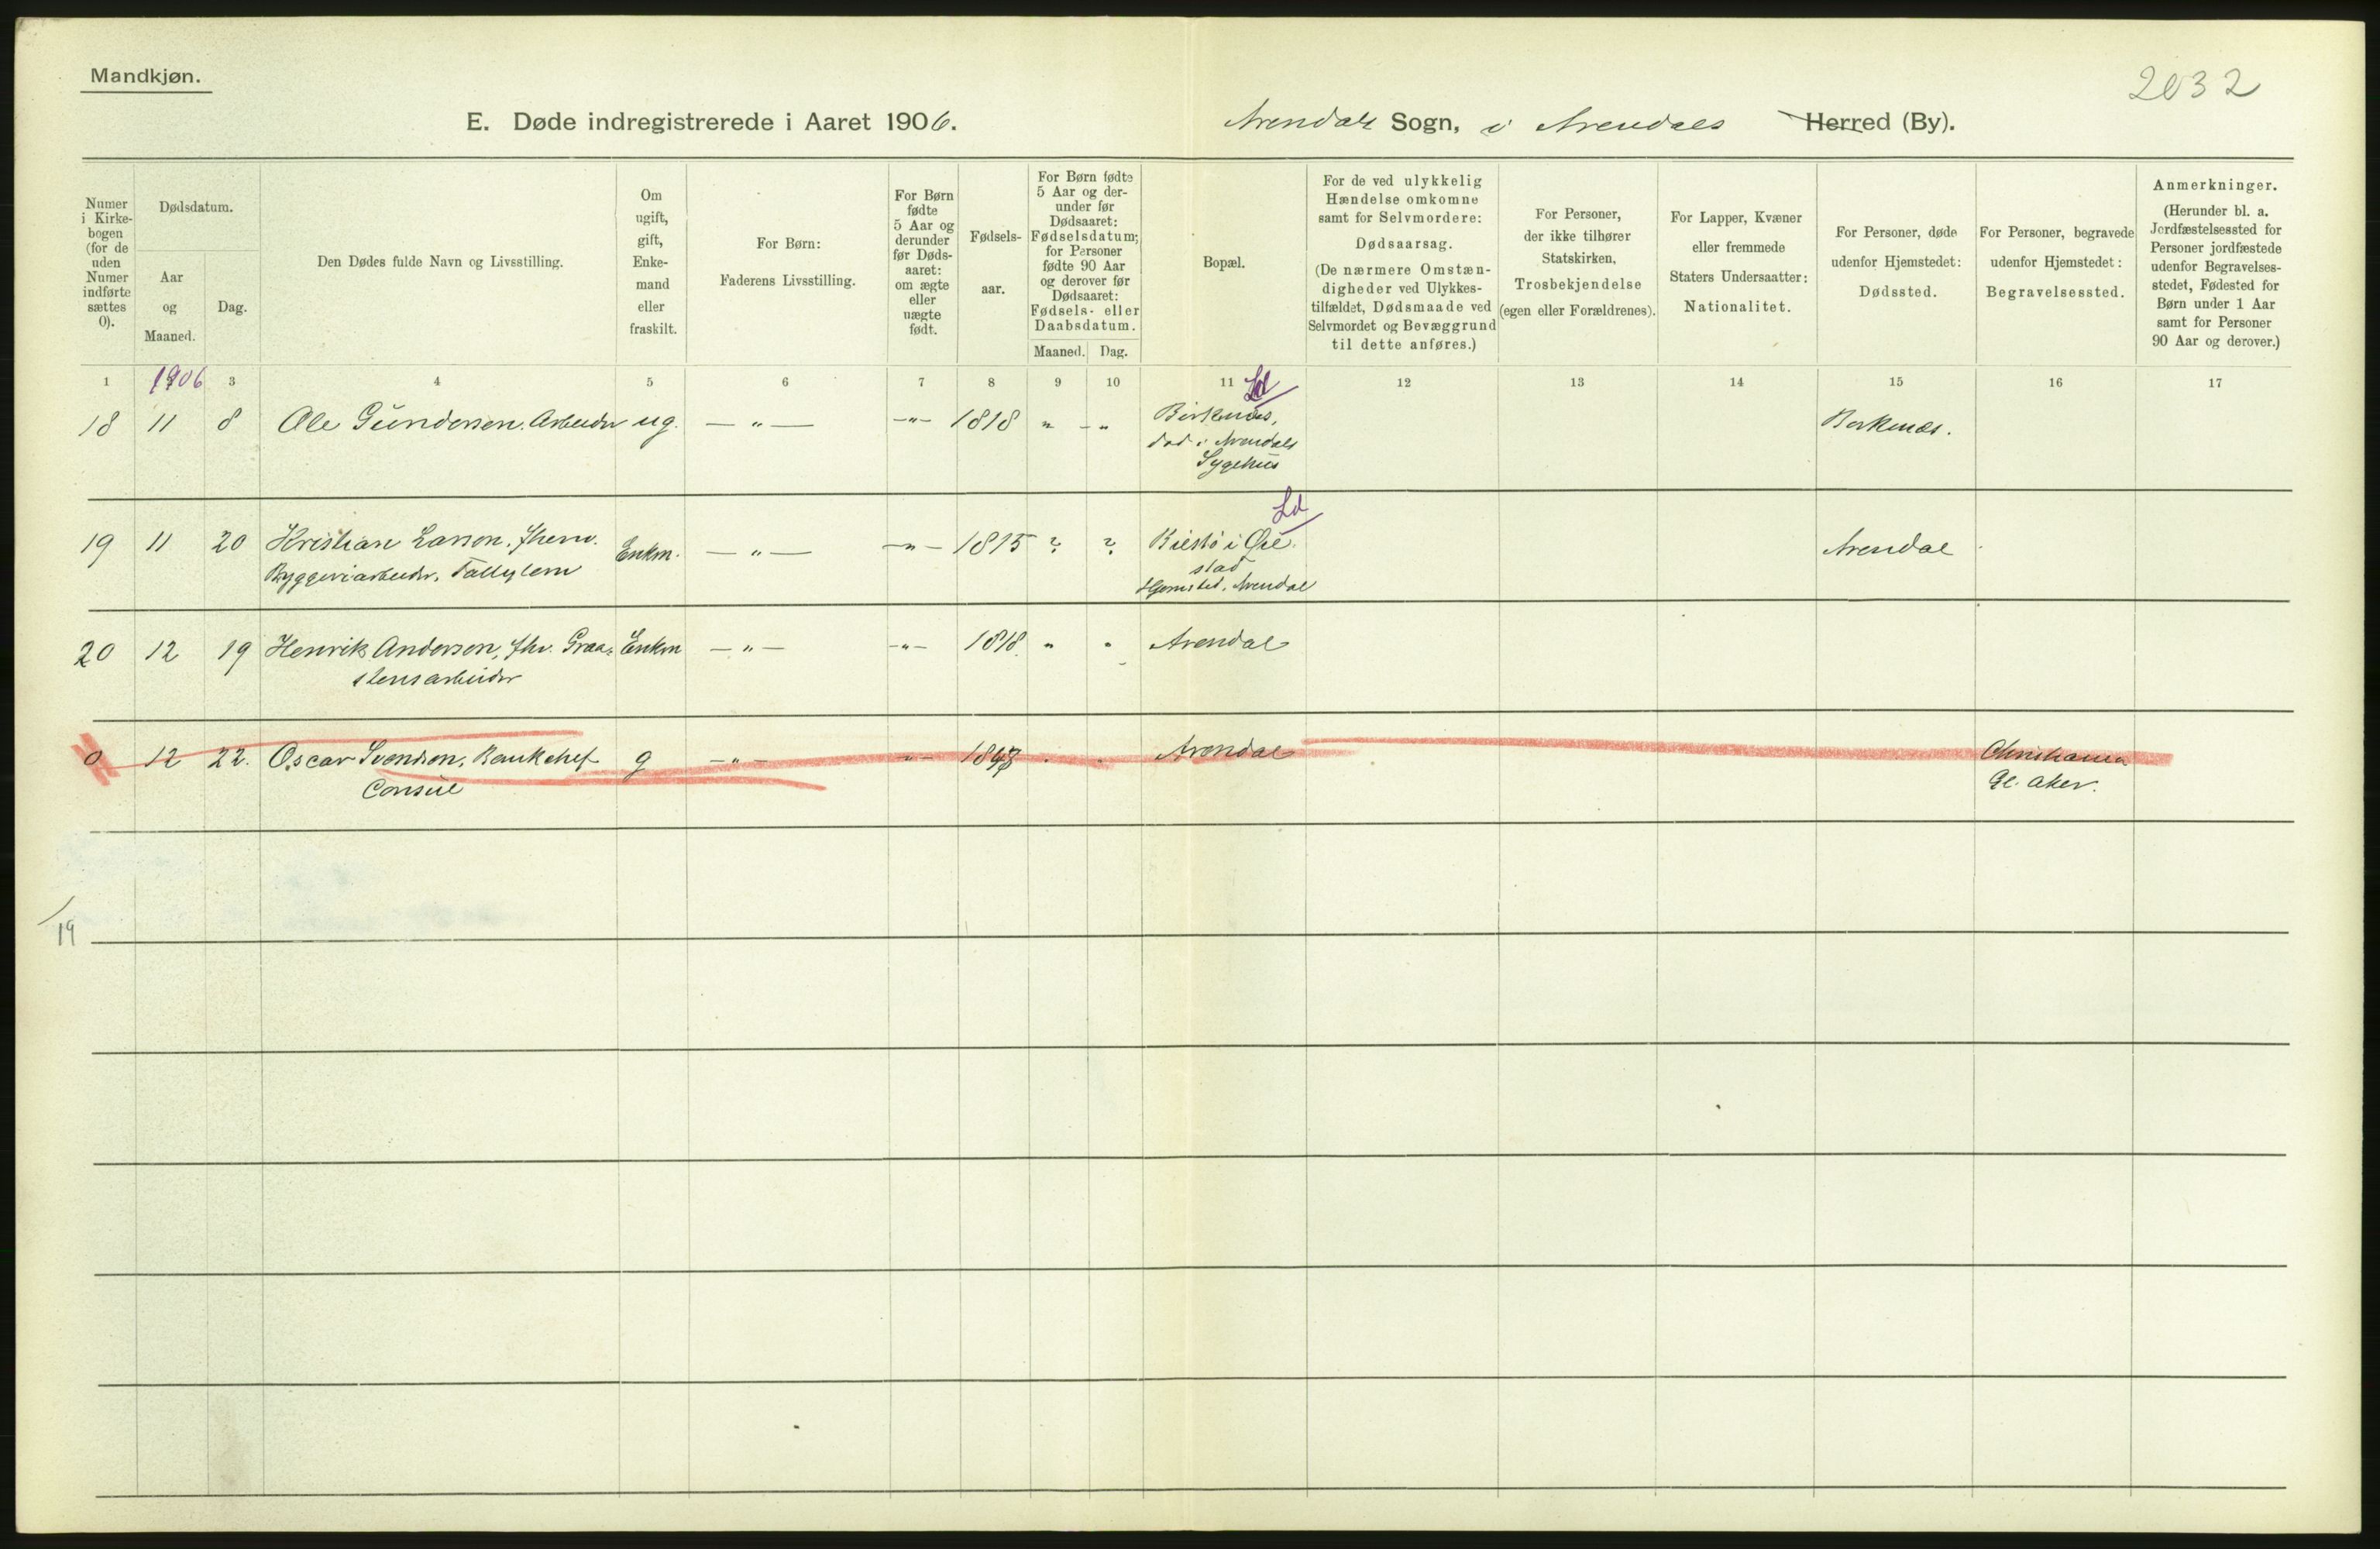 Mandkjøn.
2032
E. Døde indregistrerede i Aaret 1906.
Arendals Sogn, i Arendals Herred (By).
Numer i Kirke-bogen (for de uden Numer indførte sættes 0).
Dødsdatum.
Aar og Maaned.
Dag.
Den Dødes fulde Navn og Livsstilling.
Om ugift, gift, Enke-mand eller fraskilt.
For Børn: Faderens Livsstilling.
For Børn fødte 5 Aar og derunder før Døds-aaret: om ægte eller uægte født.
Fødsels-aar.
For Børn fødte 5 Aar og der-under før Dødsaaret: Fødselsdatum; for Personer fødte 90 Aar og derover før Dødsaaret: Fødsels- eller Daabsdatum.
Maaned. Dag.
Bopæl.
For de ved ulykkelig Hændelse omkomne samt for Selvmordere: Dødsaarsag. (De nærmere Omstæn-digheder ved Ulykkes-tilfældet, Dødsmaade ved Selvmordet og Bevæggrund til dette anføres.)
For Personer, der ikke tilhører Statskirken, Trosbekjendelse (egen eller Forældrenes).
For Lapper, Kvæner eller fremmede Staters Undersaatter: Nationalitet.
For Personer, døde udenfor Hjemstedet: Dødssted.
For Personer, begravede udenfor Hjemstedet: Begravelsessted.
Anmerkninger. (Herunder bl. a. Jordfæstelsessted for Personer jordfæstede udenfor Begravelses-stedet, Fødested for Børn under 1 Aar samt for Personer 90 Aar og derover.)
1 1906 3 4 5 6 7 8 9 10 11 Ld 12 13 14 15 16 17
18 11 8 Ole Gundersen. Arbeider ug. — " — -"- 1818 " - " Birkenæs, Birkenæs.
død i Arendals
Sygehus
Ld
19 11 20 Kristian Larson, fhenv. Enkm. — " — -"- 1815 ? ? i Øie- Arendal
Byggeriarbeider, stad
Hjemsted. Arendal
20 12 19 Henrik Anderson, fhv. Graa- Enkm - " - -"- 1818 " " Arendal
stensarbeider
0 12 22. Oscar Svendson, Bankchef g - " - " - Arendal Christiania
Consul Gl. Aker.
19